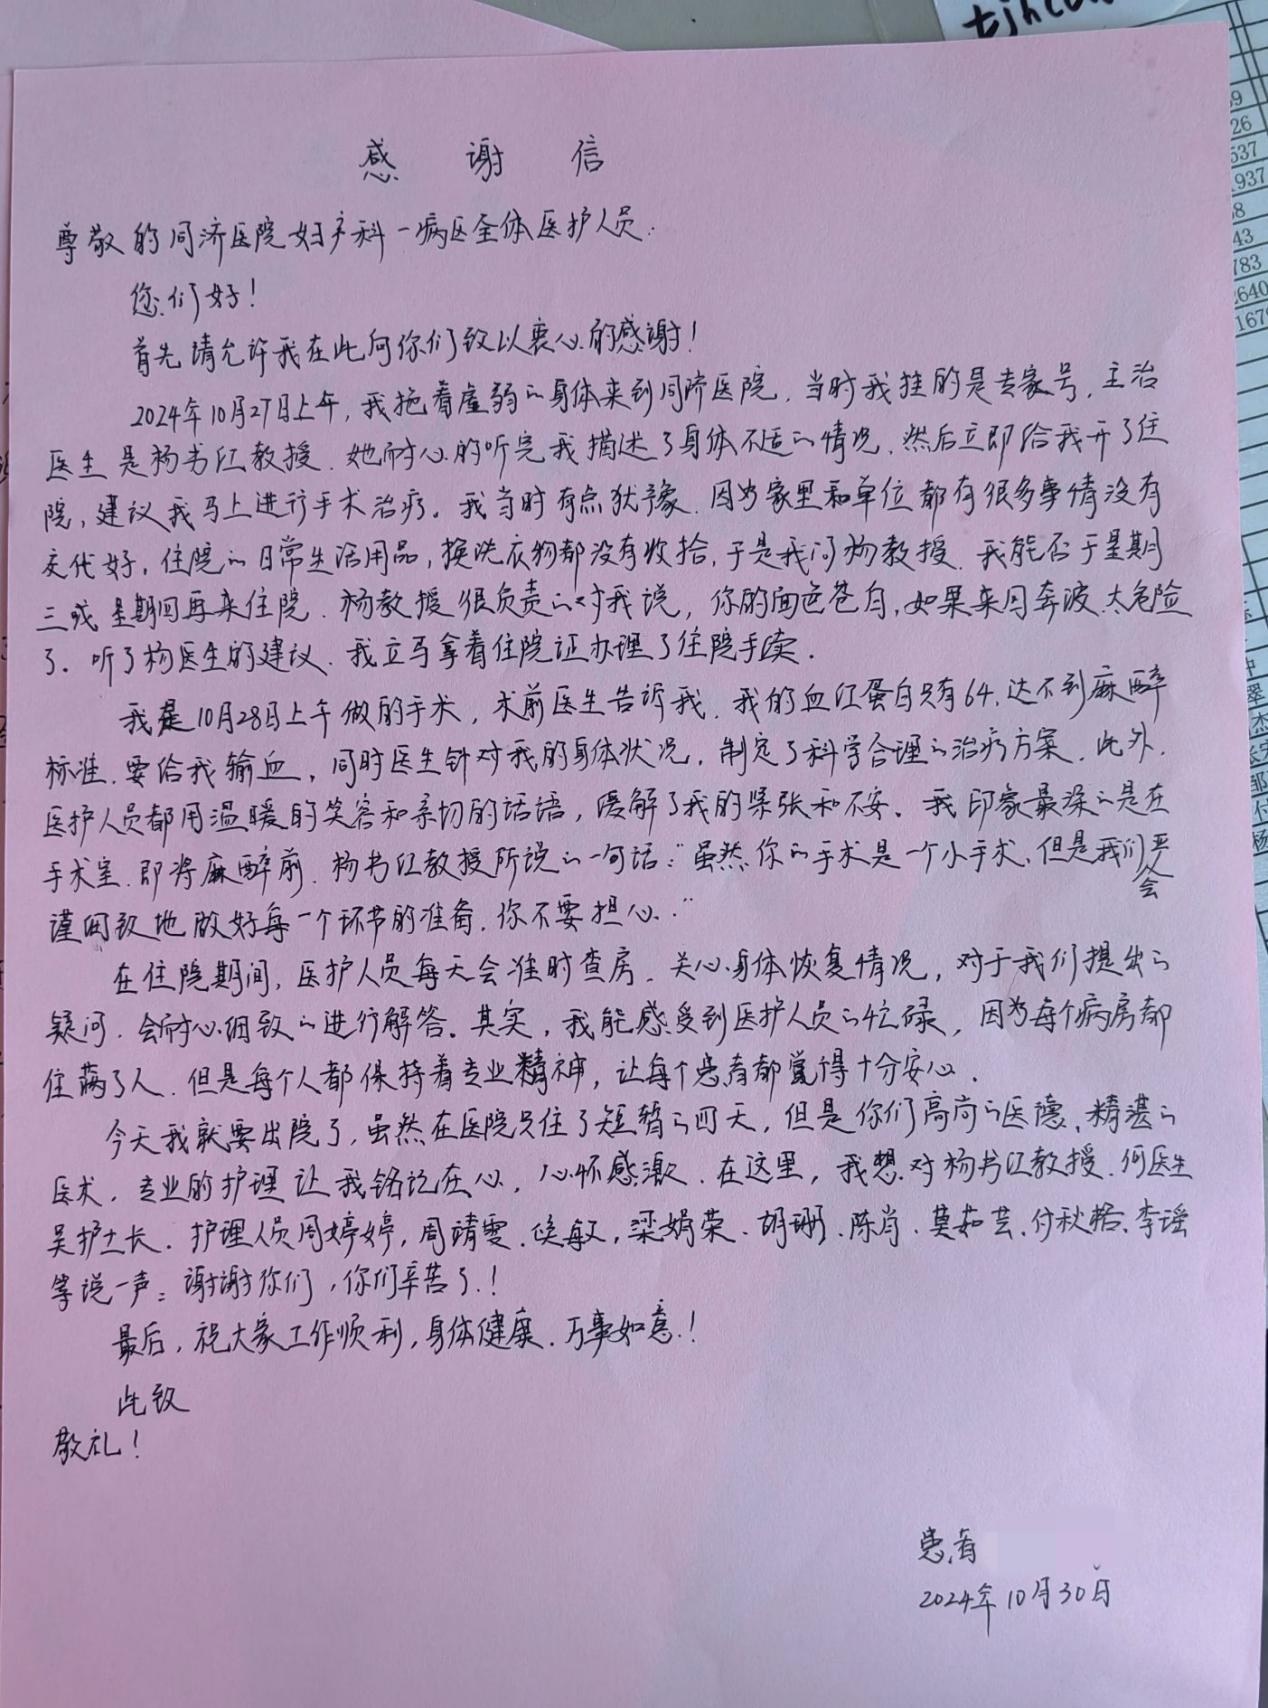 tjh
感 谢 信
尊敬的同济医院妇产科一病区全体医护人员:
您们好!
首先请允许我在此向你们致以衷心的感谢!
2024年10月27日上午,我拖着虚弱的身体来到同济医院,当时我挂的是专家号,主治
医生是杨书红教授,她耐心的听完我描述了身体不适的情况,然后立即给我开了住
院,建议我马上进行手术治疗。我当时有点犹豫,因为家里和单位都有很多事情没有
交代好,住院的日常生活用品,换洗衣物都没有收拾,于是我问杨教授,我能否于星期
三或星期四再来住院,杨教授很负责的对我说,你的面色苍白,如果来回奔波,太危险
了.听了杨医生的建议,我立马拿着住院证办理了住院手续.
我是10月28日上午做的手术,术前医生告诉我,我的血红蛋白只有64,达不到麻醉
标准,要给我输血,同时医生针对我的身体状况,制定了科学合理的治疗方案,此外,
医护人员都用温暖的笑容和亲切的话语,缓解了我的紧张和不安。我印象最深的是在
手术室,即将麻醉前,杨书红教授所说的一句话:“虽然你的手术是一个小手术,但是我们会严
谨细致地做好每一个环节的准备,你不要担心.”
在住院期间,医护人员每天会准时查房,关心身体恢复情况,对于我们提出的
疑问,会耐心细致的进行解答。其实,我能感受到医护人员的忙碌,因为每个病房都
住满了人,但是每个人都保持着专业精神,让每个患者都觉得十分安心.
今天我就要出院了,虽然在医院只住了短暂的四天,但是你们高尚的医德、精湛的
医术,专业的护理让我铭记在心,心怀感激.在这里,我想对杨书红教授、何医生
吴护士长、护理人员周婷婷,周靖雯、侯敏,梁娟荣、胡珊、陈肖、莫茹芸、付秋、李瑶
等说一声:谢谢你们,你们辛苦了!
最后,祝大家工作顺利,身体健康,万事如意!
此致
敬礼!
患者
2024年10月30日
26
537
937
43
783
2640
1679